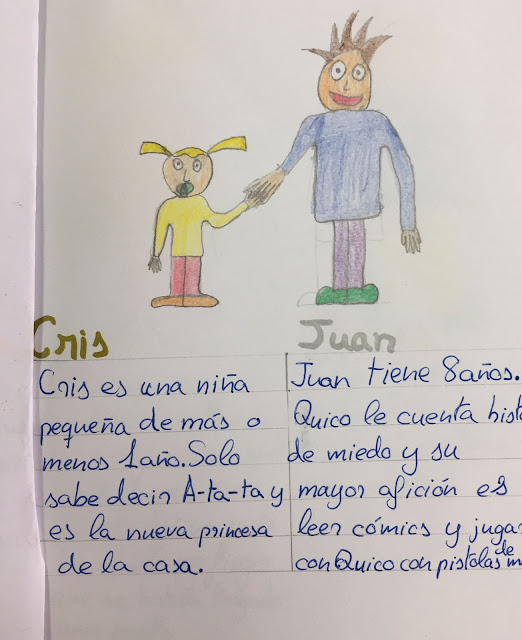 Cris
Cris es una niña
pequeña de más o
menos 1 año. Solo
sabe decir A-ta-ta y
es la nueva princesa
de la casa.
Juan
Juan tiene 8 años.
Quico le cuenta
de miedo y su
mayor afición es
leer cómics y
con Quico con pistolas de